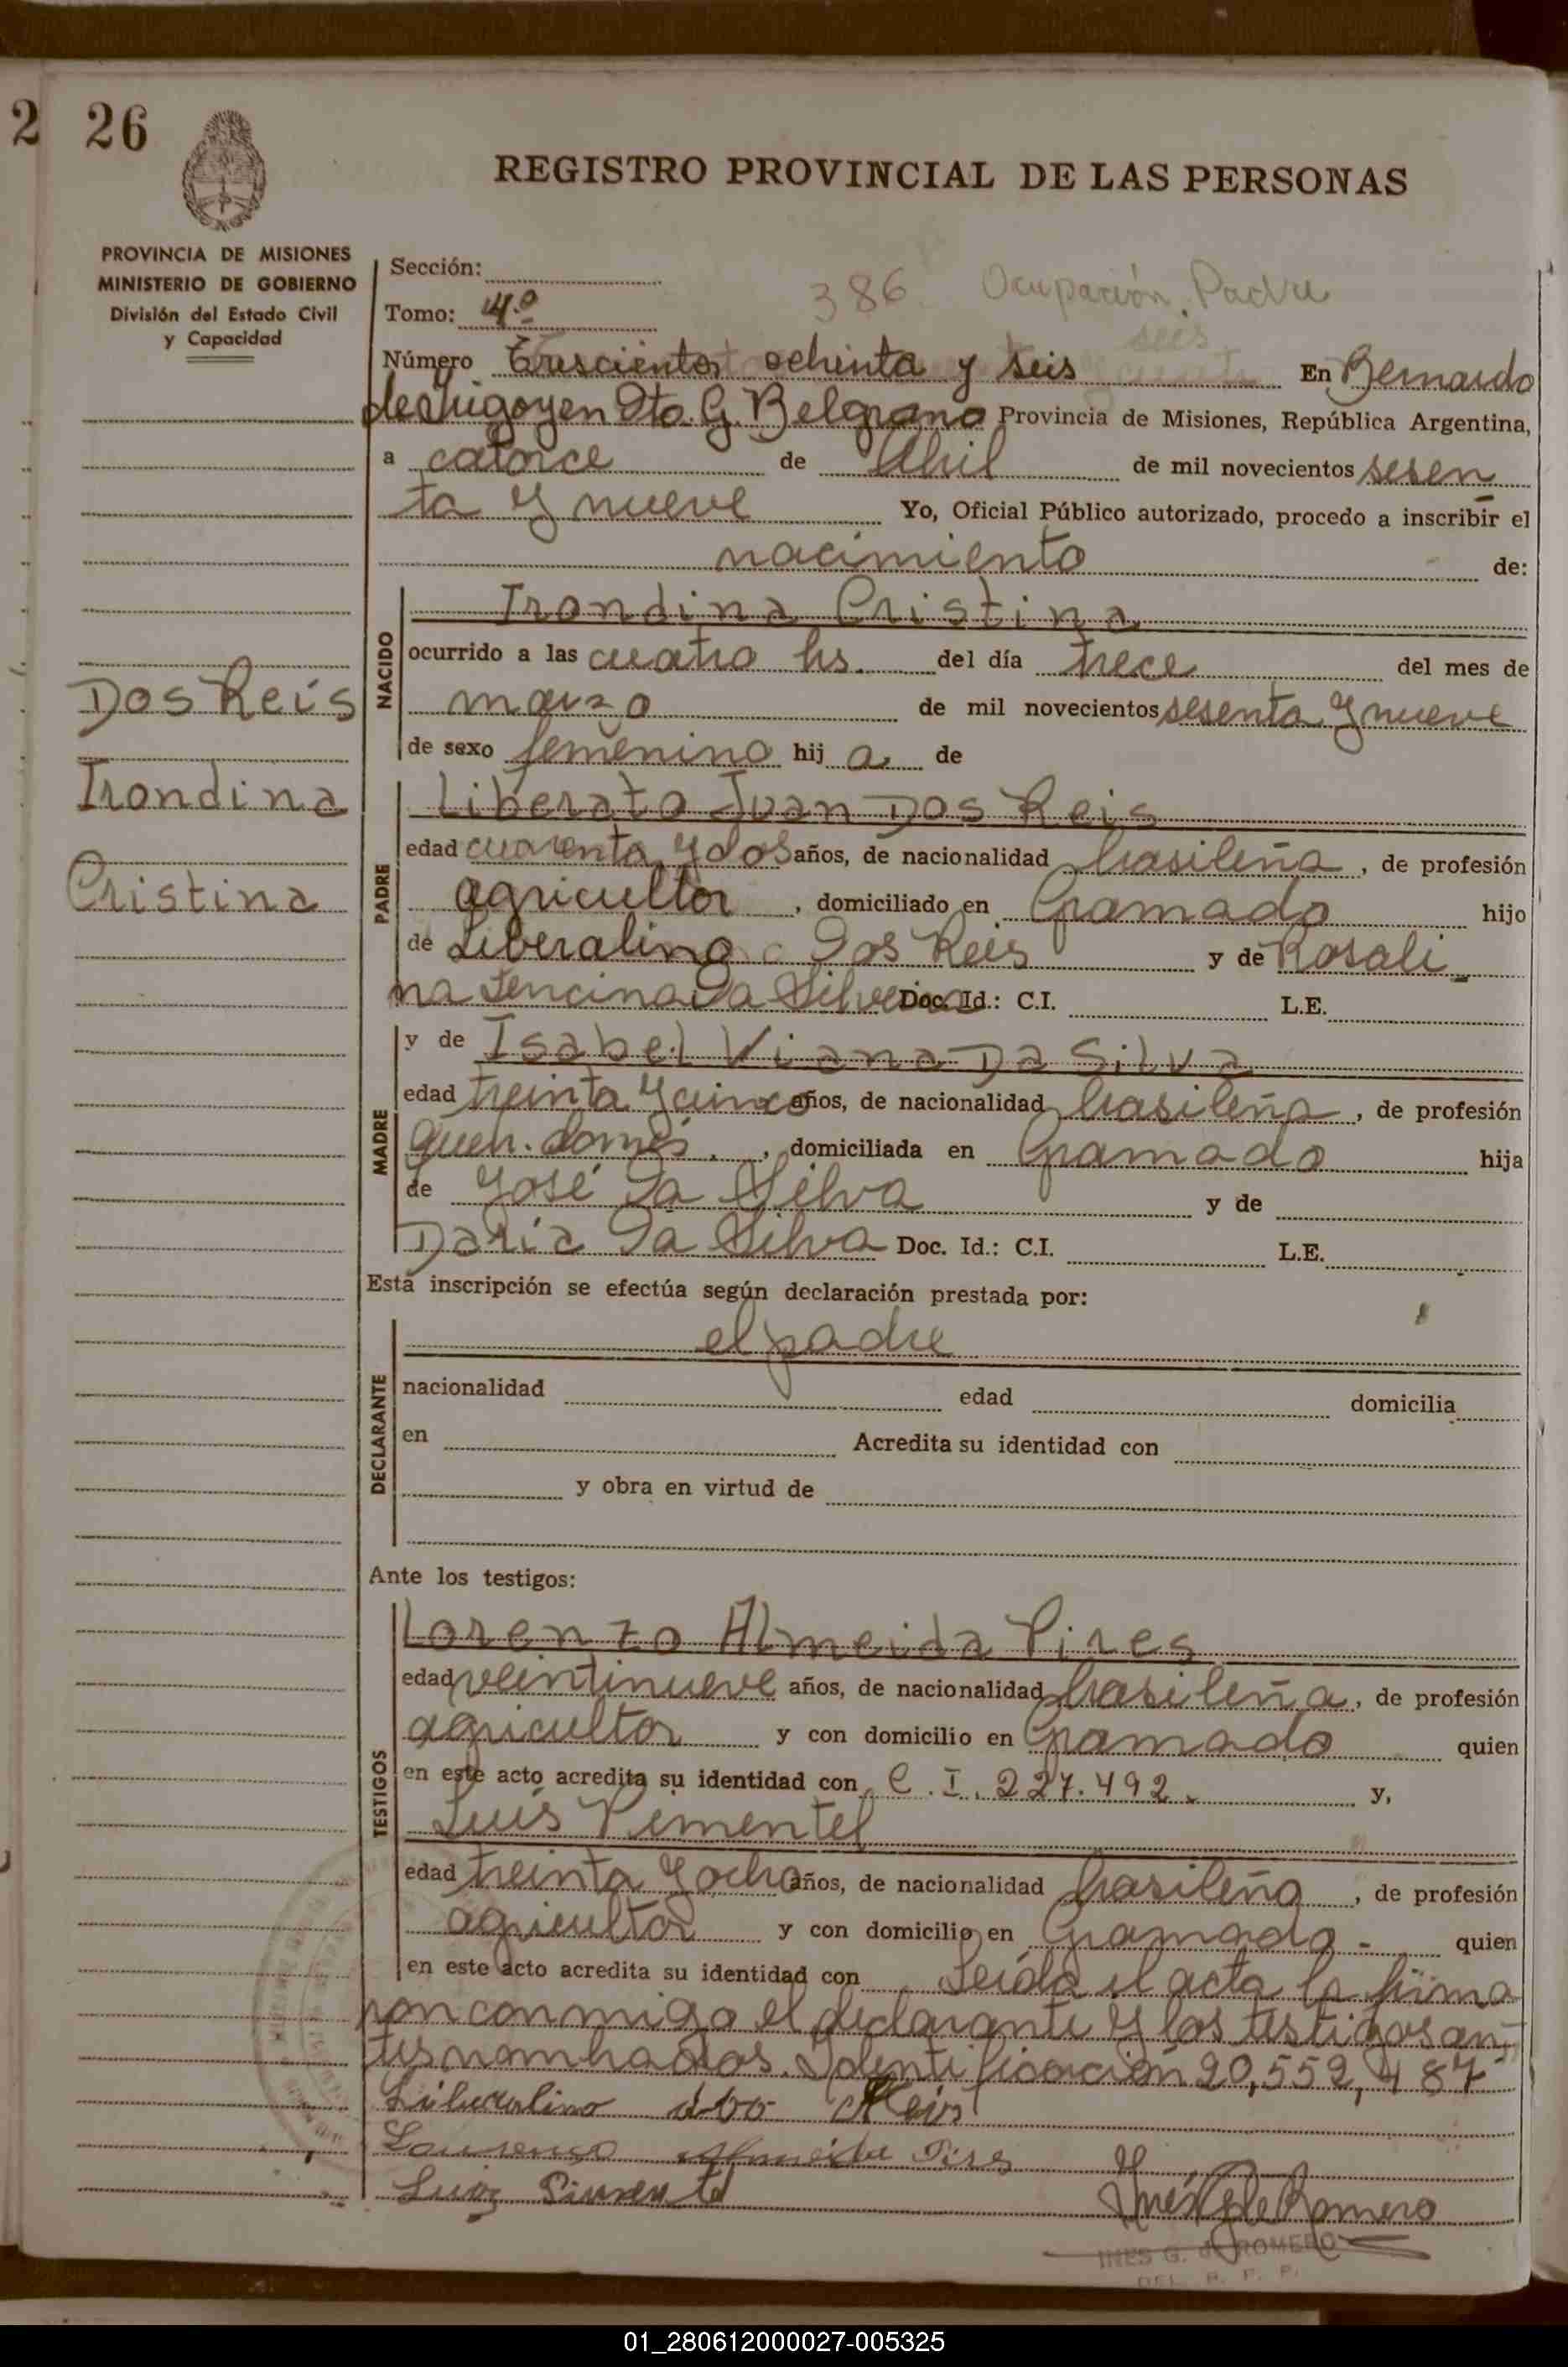 2 26
REGISTRO PROVINCIAL DE LAS PERSONAS
PROVINCIA DE MISIONES
MINISTERIO DE GOBIERNO
División del Estado Civil
y Capacidad
Sección:
386 Ocupación Padre
Tomo: 4º
seis
Número Trescientos ochenta y seis En Bernardo
de Irigoyen Dto. G. Belgrano Provincia de Misiones, República Argentina,
a catorce de Abril de mil novecientos sesen
ta y nueve Yo, Oficial Público autorizado, procedo a inscribir el
nacimiento de:
Dos Reis
Irondina
Cristina
NACIDO
Irondina Cristina
ocurrido a las cuatro hs. del día trece del mes de
marzo de mil novecientos sesenta y nueve
de sexo femenino hij a de
PADRE
Liberato Juan Dos Reis
edad cuarenta y dos años, de nacionalidad brasileña, de profesión
agricultor, domiciliado en Gramado hijo
de Liberalino Dos Reis y de Rosali
na Da Silveira Doc. Id.: C.I. L.E.
MADRE
y de Isabel Viana Da Silva
edad treinta y cinco años, de nacionalidad brasileña, de profesión
queh. domés., domiciliada en Gramado hija
de José Da Silva y de
Daria Da Silva Doc. Id.: C.I. L.E.
Esta inscripción se efectúa según declaración prestada por:
DECLARANTE
el padre
nacionalidad edad domicilia
en Acredita su identidad con
y obra en virtud de
Ante los testigos:
TESTIGOS
Lorenzo Almeida Pires
edad veintinueve años, de nacionalidad brasileña, de profesión
agricultor y con domicilio en Gramado quien
en este acto acredita su identidad con C.I. 227.492. y,
Luis Pimentel
edad treinta y ocho años, de nacionalidad brasileña, de profesión
agricultor y con domicilio en Gramado - quien
en este acto acredita su identidad con Leída el acta la firma
ron conmigo el declarante y los testigos an-
tes nombrados. Identificación 20,552,487
Liberalino dos Reis
Lourenço Almeida Pires
Luiz Pimentel
Inés G. de Romero
INES G. de ROMERO
DEL. R. P. P.
01_280612000027-005325